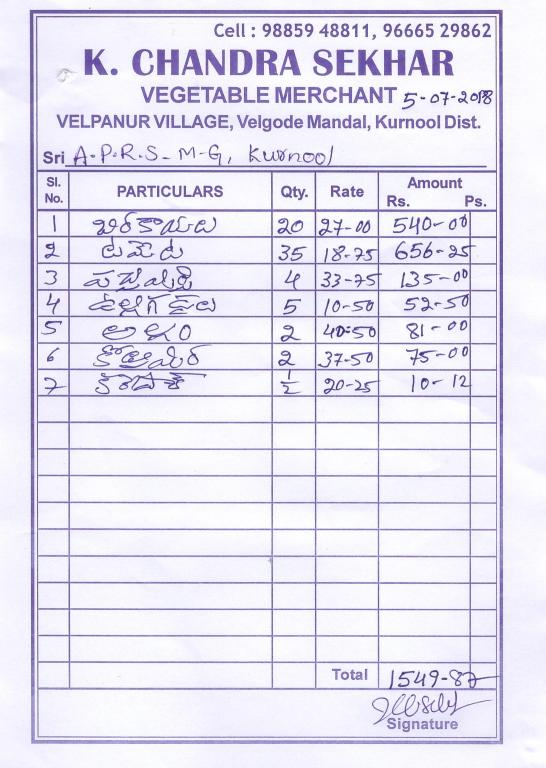 Cell : 98859 48811, 96665 29862
K. CHANDRA SEKHAR
VEGETABLE MERCHANT 5-07-2018
VELPANUR VILLAGE, Velgode Mandal, Kurnool Dist.
Sri A.P.R.S-M-G, Kurnool
Sl. No. PARTICULARS Qty. Rate Amount Rs. Ps.
1 బీరకాయలు 20 27-00 540-00
2 టమేటు 35 18-75 656-25
3 పచ్చిమిర్చి 4 33-75 135-00
4 ఉల్లిగడ్డలు 5 10-50 52-50
5 అల్లం 2 40-50 81-00
6 కొత్తిమీర 2 37-50 75-00
7 1/2 20-25 10-12
Total 1549-87
Signature